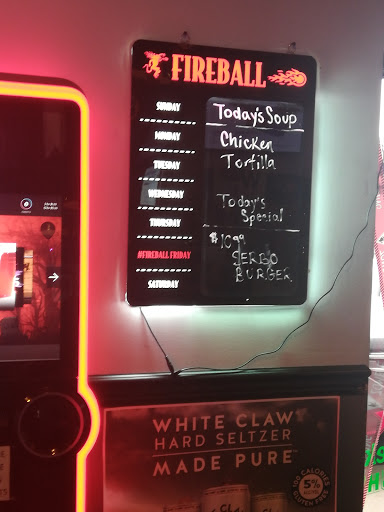 FIREBALL
SUNDAY
MONDAY
TUESDAY
WEDNESDAY
THURSDAY
#FIREBALL FRIDAY
SATURDAY
Today's Soup
Chicken
Tortilla
Today's
Special
$10.99
SERBO
BURGER
WHITE CLAW
HARD SELTZER
MADE PURE
5%